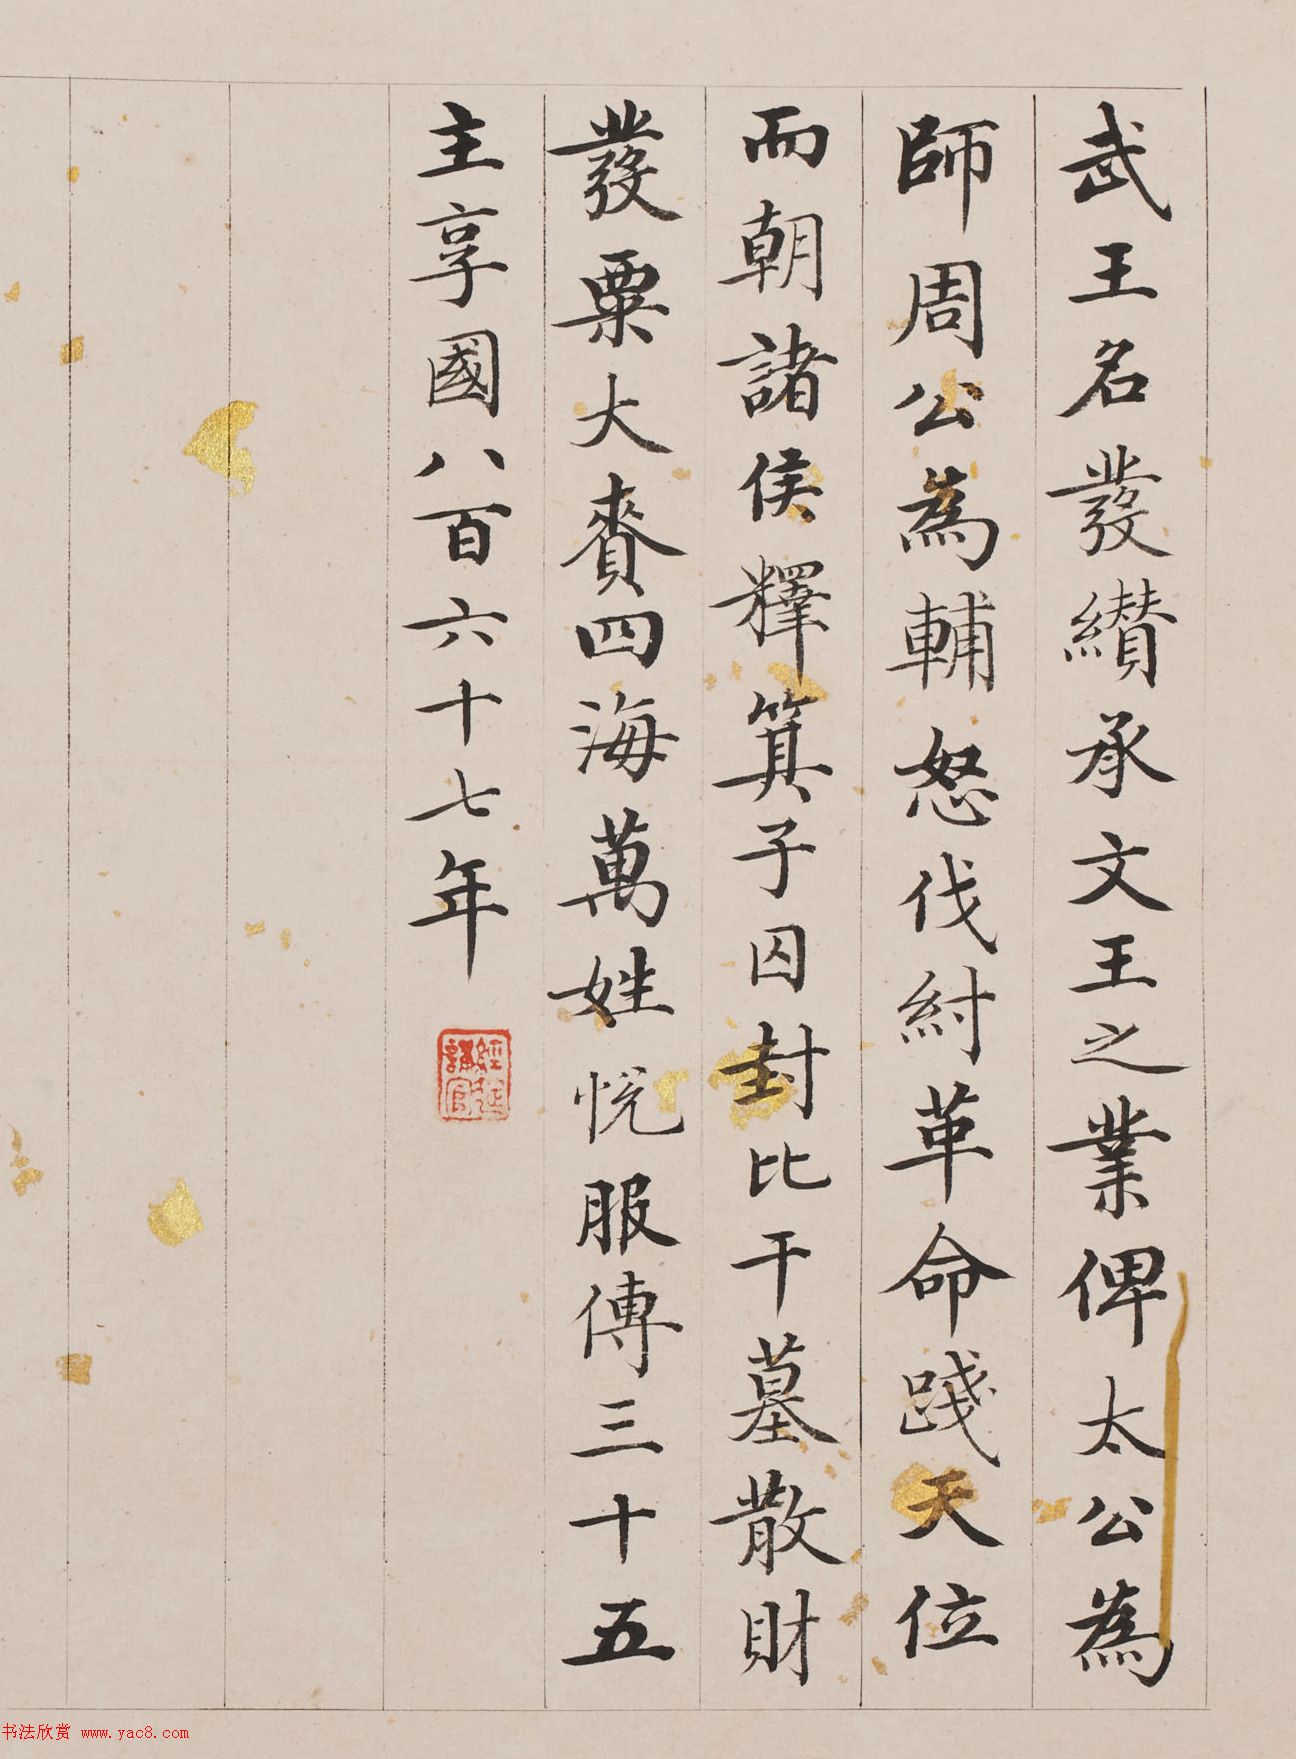 武王名發纘承文王之業俾太公為
師周公為輔怒伐紂革命踐天位
而朝諸侯釋箕子囚封比干墓散財
發粟大賚四海萬姓悅服傳三十五
主享國八百六十七年
經筵講官
书法欣赏 www.yac8.com